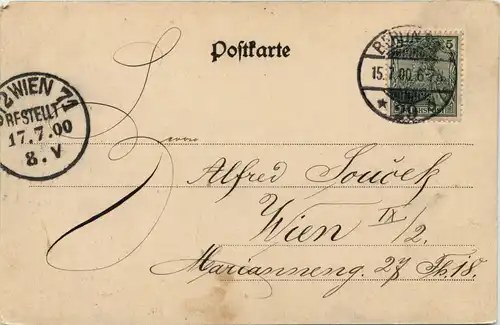 Postkarte
BERLIN
15.7.00. 6-7
5
WIEN 71
BESTELLT
17.7.00
8.V
Alfred Souček
Wien IX/2.
Marianneng. 27 Th. 18.